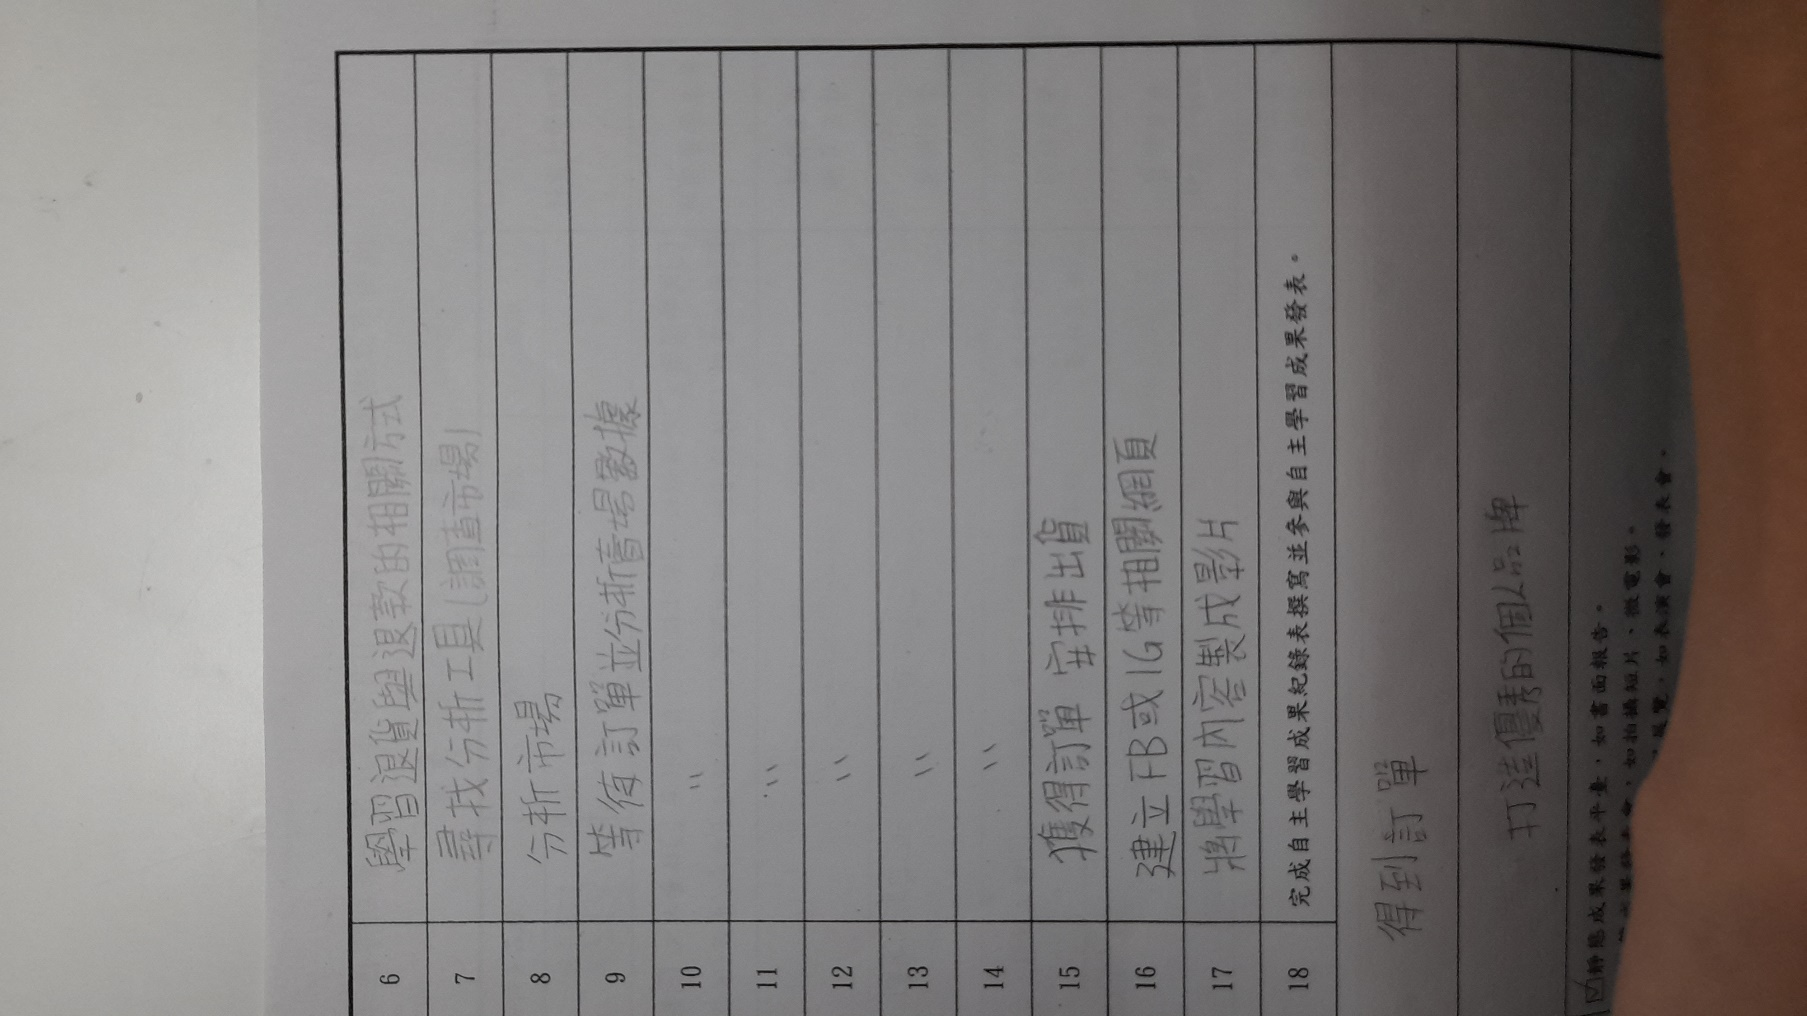 6 學習退貨與退款的相關方式
7 尋找分析工具(調查市場)
8 分析市場
9 等待訂單並分析市場數據
10 〃
11 〃
12 〃
13 〃
14 〃
15 獲得訂單 安排出貨
16 建立FB或IG等相關網頁
17 將學習內容製成影片
18 完成自主學習成果紀錄表撰寫並參與自主學習成果發表。
得到訂單
打造優秀的個人品牌
☑靜態成果發表平臺,如書面報告。
,如拍攝短片、微電影。
展覽,如表演會、發表會。